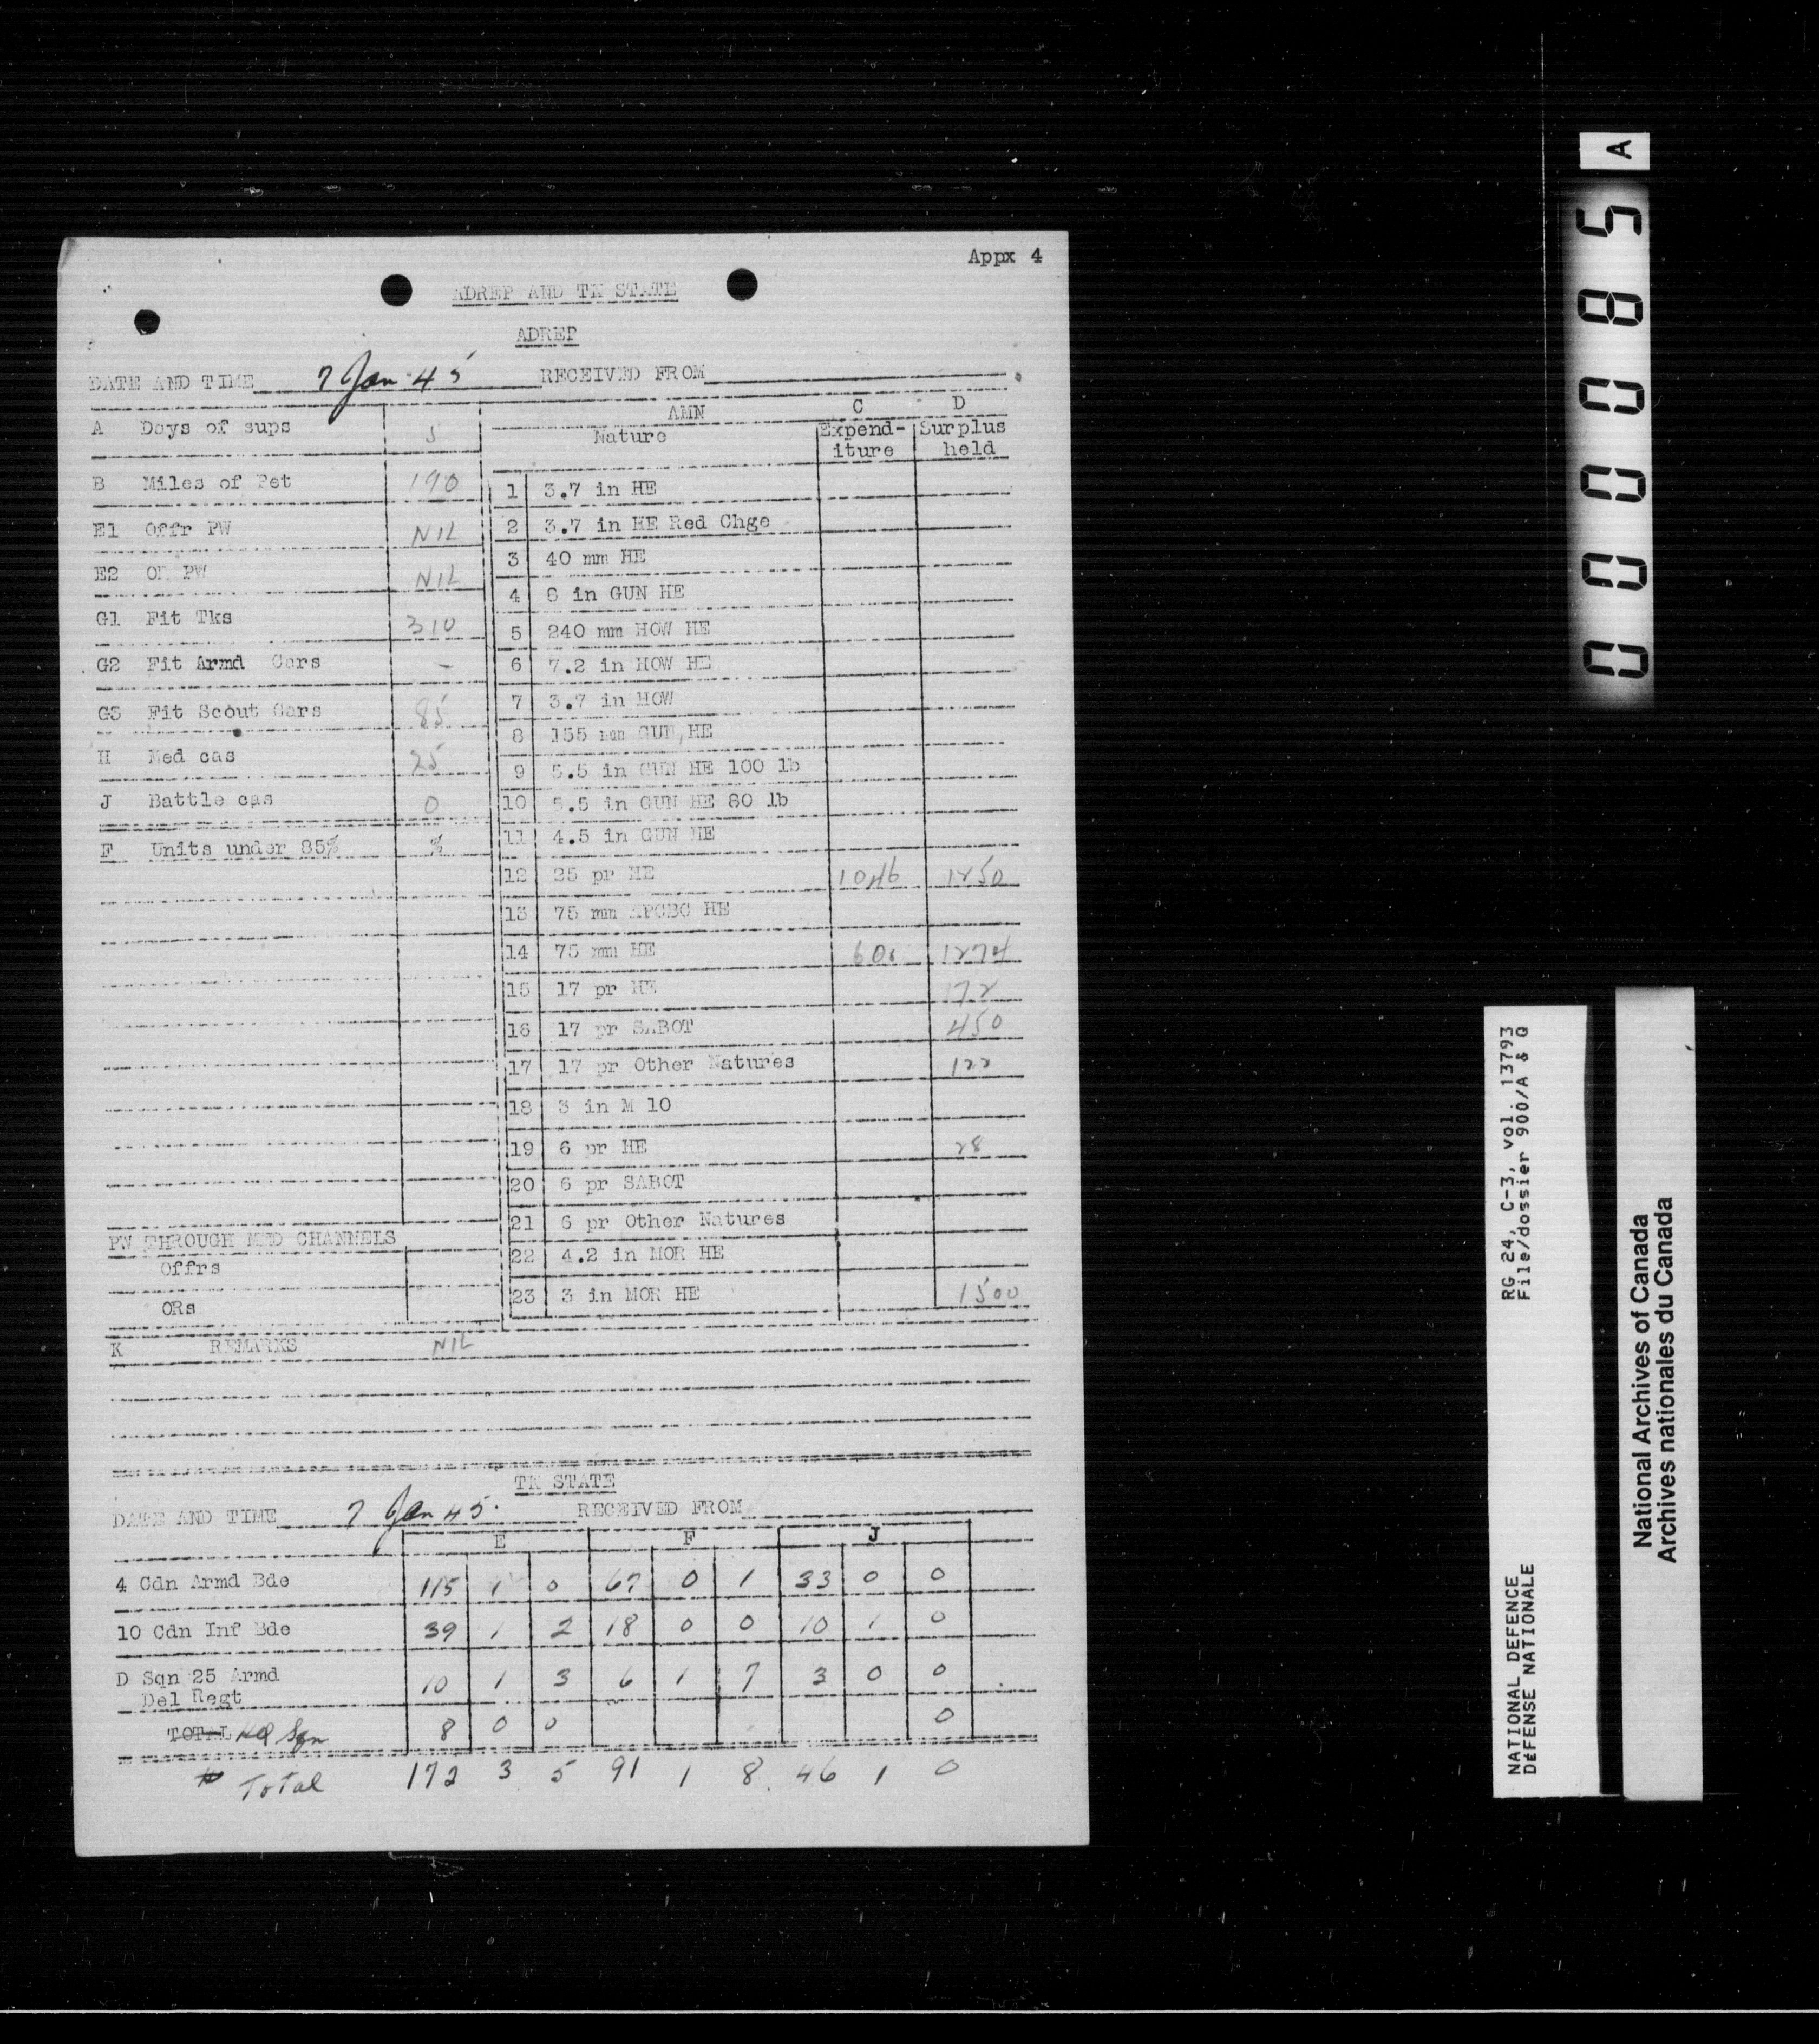 Appx 4
ADREP AND TK STATE
ADREP
DATE AND TIME 7 Jan 45 RECEIVED FROM
AMN C D
A Days of sups 5 Nature Expend- Surplus
iture held
B Miles of Pet 190 1 3.7 in HE
E1 Offr PW NIL 2 3.7 in HE Red Chge
3 40 mm HE
E2 OR PW NIL 4 8 in GUN HE
G1 Fit Tks 310 5 240 mm HOW HE
G2 Fit Armd Cars - 6 7.2 in HOW HE
G3 Fit Scout Cars 85 7 3.7 in HOW
8 155 mm GUN HE
H Med cas 25 9 5.5 in GUN HE 100 lb
J Battle cas 0 10 5.5 in GUN HE 80 lb
F Units under 85% % 11 4.5 in GUN HE
12 25 pr HE 1046 1250
13 75 mm APCBC HE
14 75 mm HE 1274
15 17 pr HE 172
16 17 pr SABOT 450
17 17 pr Other Natures 122
18 3 in M 10
19 6 pr HE 28
20 6 pr SABOT
21 6 pr Other Natures
PW THROUGH MED CHANNELS
22 4.2 in MOR HE
Offrs
ORs 23 3 in MOR HE 1500
K REMARKS NIL
TK STATE
DATE AND TIME 7 Jan 45. RECEIVED FROM
E F J
4 Cdn Armd Bde 115 1 0 67 0 1 33 0 0
10 Cdn Inf Bde 39 1 2 18 0 0 10 1 0
D Sqn 25 Armd 10 1 3 6 1 7 3 0 0
Del Regt
TOTAL HQ Sqn 8 0 0 0
Total 172 3 5 91 1 8 46 1 0
000085 A
RG 24, C-3, vol. 13793
File/dossier 900/A & Q
NATIONAL DEFENCE
DÉFENSE NATIONALE
National Archives of Canada
Archives nationales du Canada